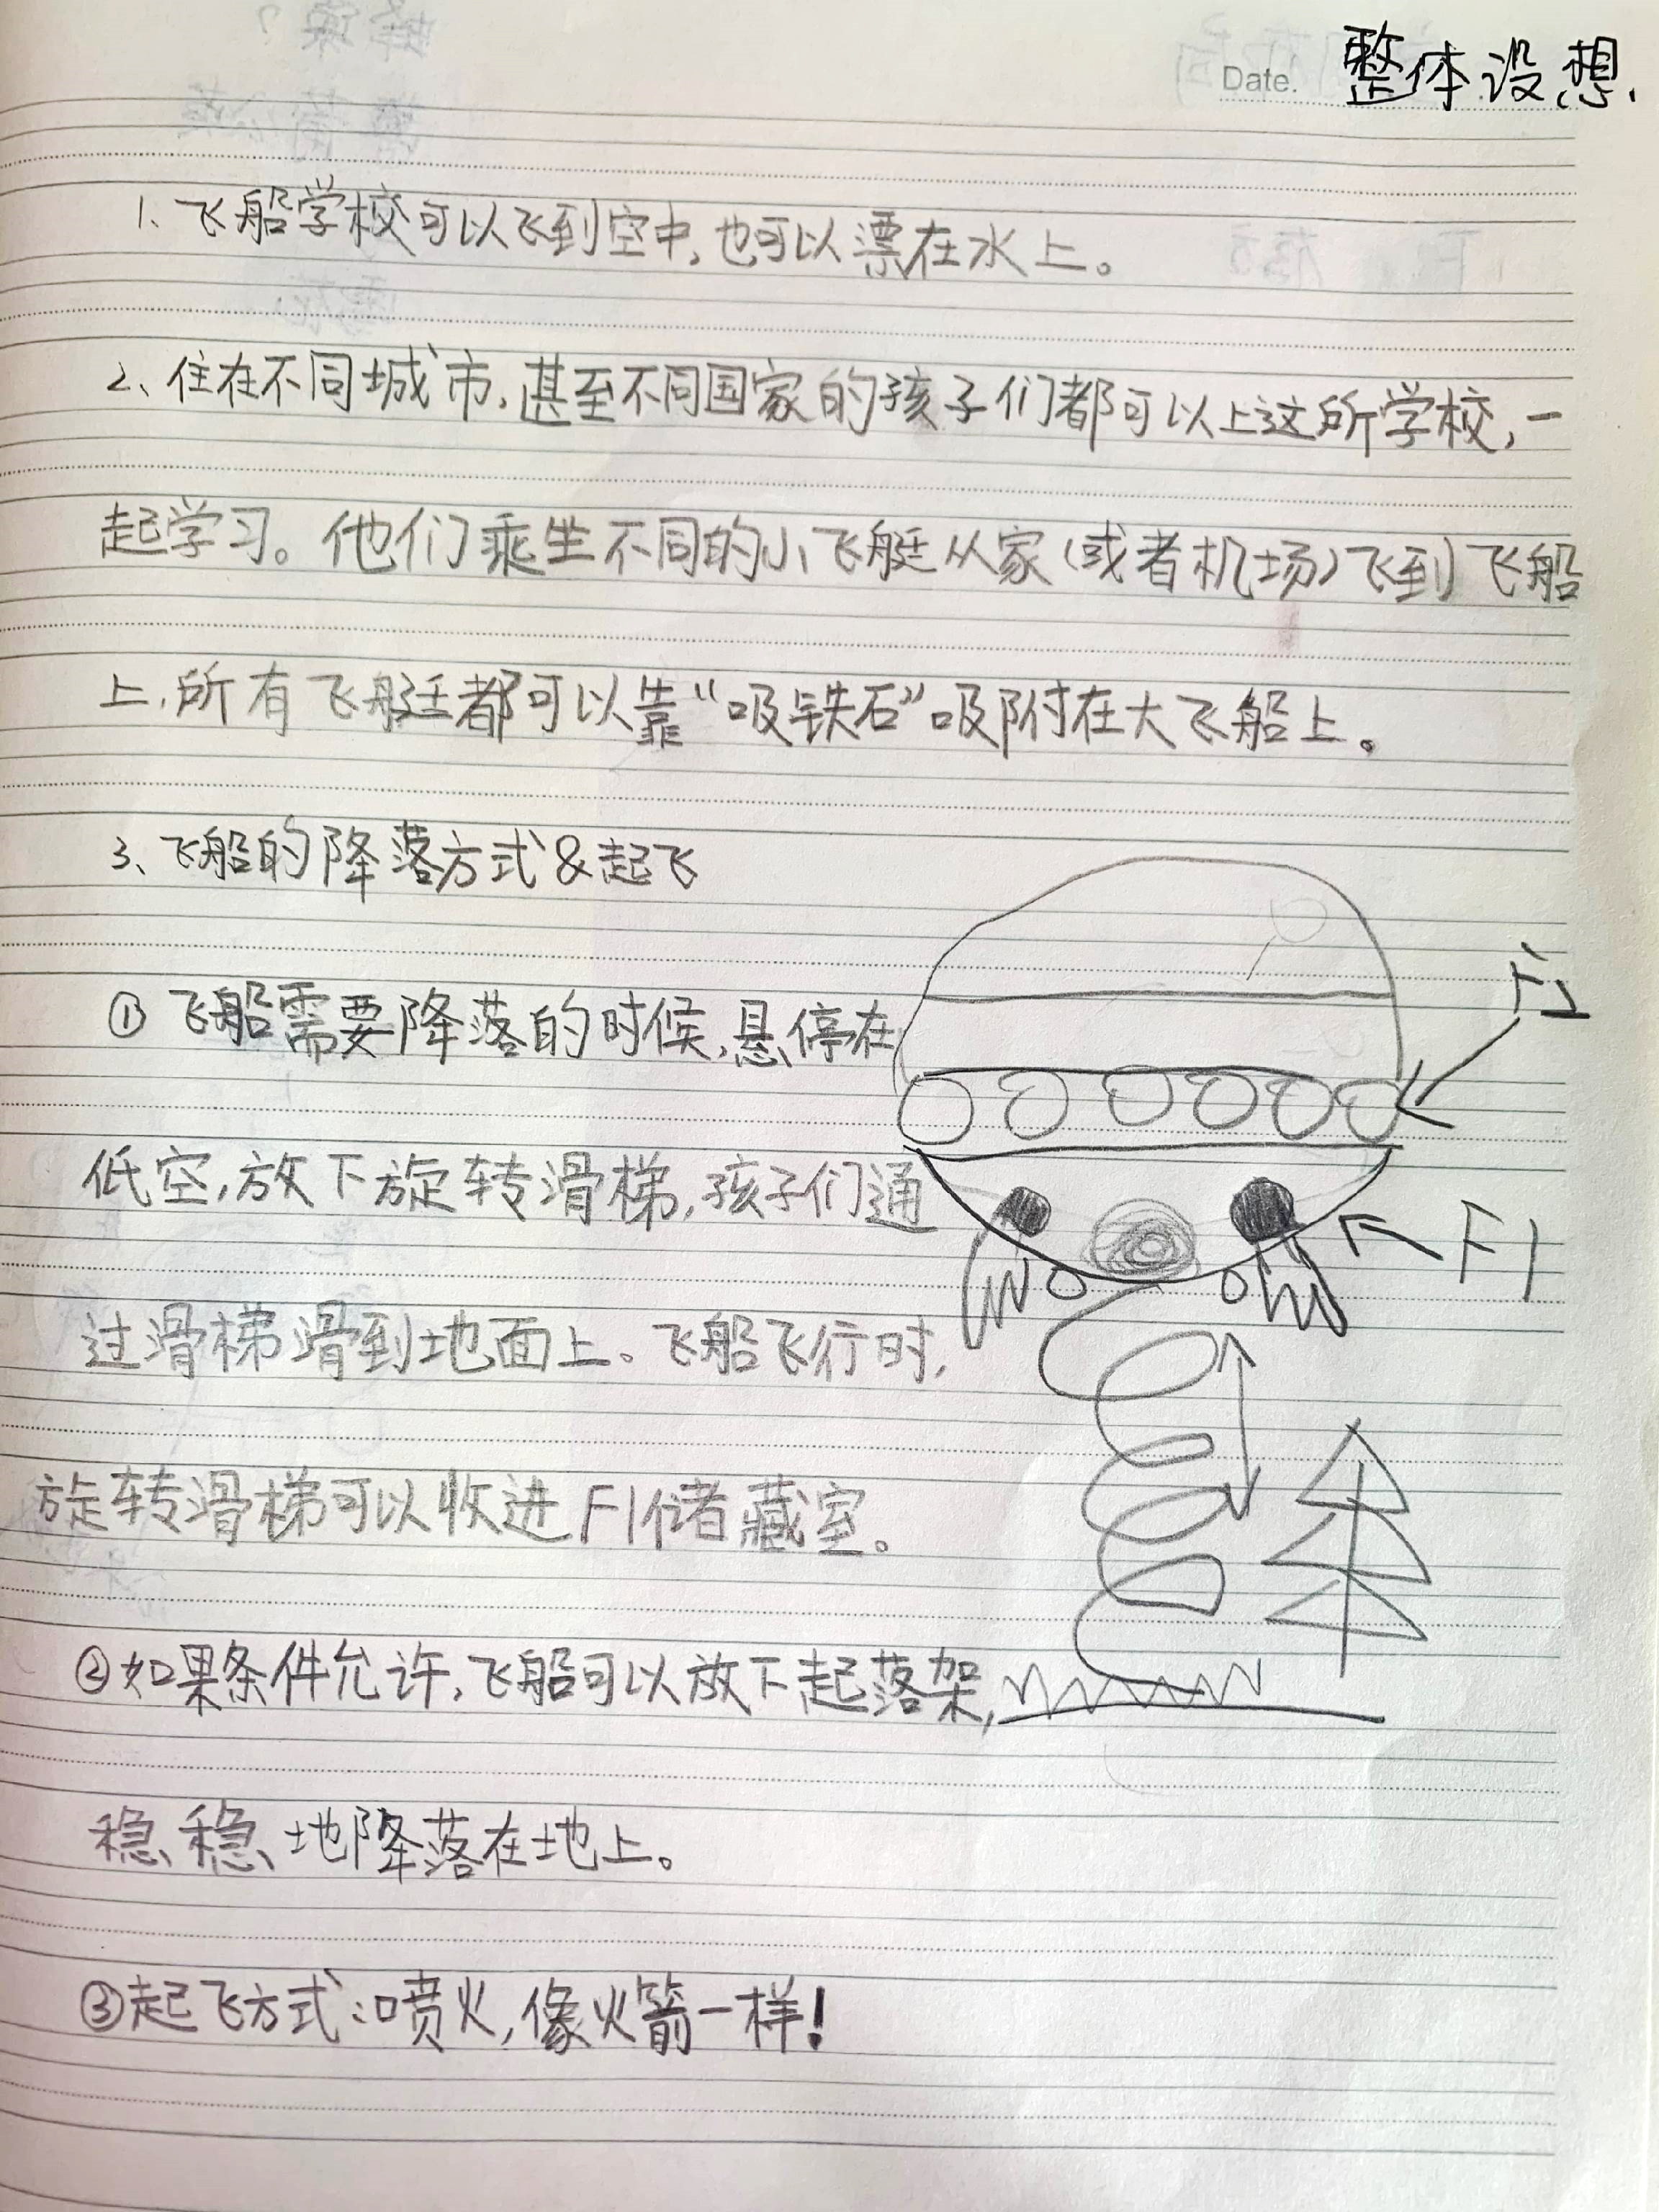 Date. 整体设想.
1、飞船学校可以飞到空中,也可以漂在水上。
2、住在不同城市,甚至不同国家的孩子们都可以上这所学校,一
起学习。他们乘坐不同的小飞艇从家(或者机场)飞到飞船
上,所有飞艇都可以靠“吸铁石”吸附在大飞船上。
3、飞船的降落方式&起飞
①飞船需要降落的时候,悬停在
低空,放下旋转滑梯,孩子们通
F1
过滑梯滑到地面上。飞船飞行时,
旋转滑梯可以收进F1储藏室。
②如果条件允许,飞船可以放下起落架,
稳稳地降落在地上。
③起飞方式:喷火,像火箭一样!